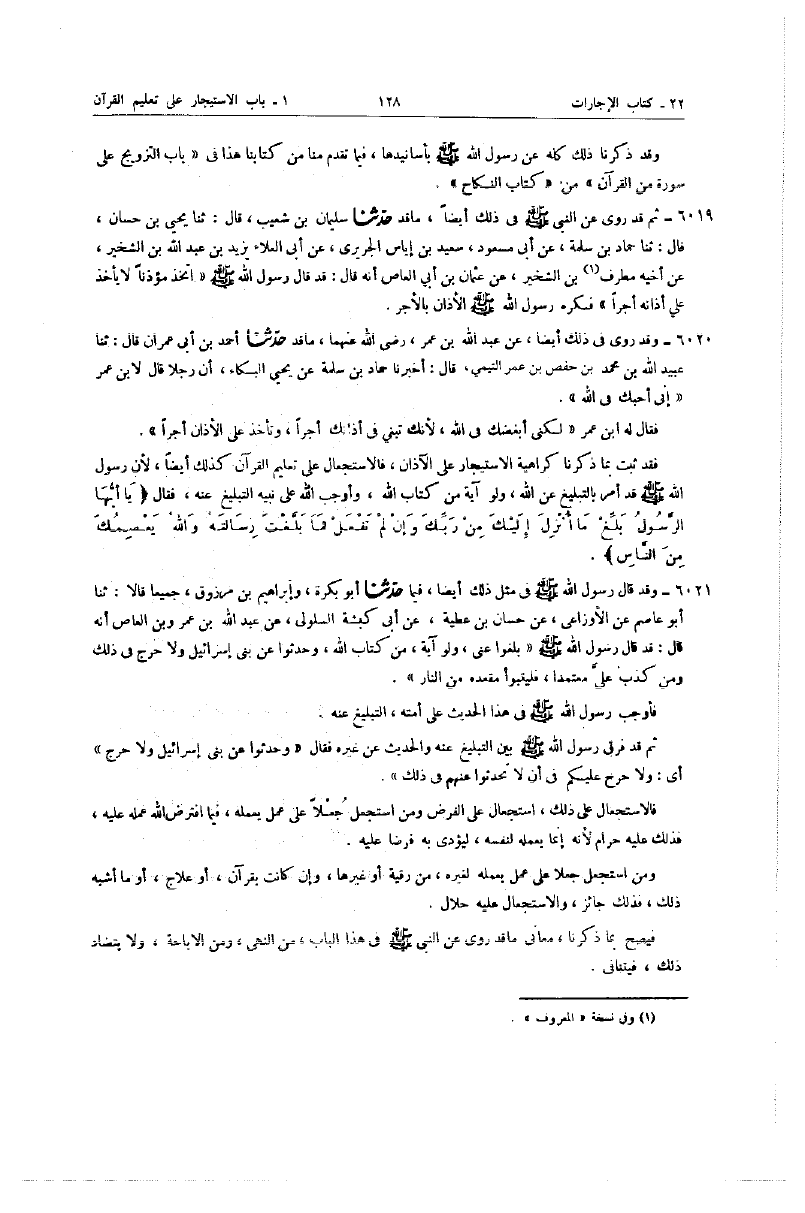 ٢٢ ـ كتاب الإجارات ١٢٨ ١ ـ باب الاستيجار على تعليم القرآن
وقد ذكرنا ذلك كله عن رسول الله ﷺ بأسانيدها ، فيما تقدم منا من كتابنا هذا فى « باب التزويج على
سورة من القرآن » من: « كتاب النكاح » .
٦٠١٩ ـ ثم قد روى عن النبي ﷺ فى ذلك أيضاً ، ماقد حدثنا سليمان بن شعيب ، قال : ثنا يحيى بن حسان ،
قال : ثنا حماد بن سلمة ، عن أبى مسعود ، سعيد بن إياس الجريرى ، عن أبى العلاء يزيد بن عبد الله بن الشخير ،
عن أخيه مطرف(١) بن الشخير ، عن عثمان بن أبي العاص أنه قال : قد قال رسول الله ﷺ « اتخذ مؤذناً لايأخذ
علي أذانه أجراً » فكره رسول الله ﷺ الأذان بالأجر .
٦٠٢٠ ـ وقد روى فى ذلك أيضا ، عن عبد الله بن عمر ، رضى الله عنهما ، ماقد حدثنا أحمد بن أبى عمران قال : ثنا
عبيد الله بن محمد بن حفص بن عمر التيمي، قال : أخبرنا حماد بن سلمة عن يحيي البكاء ، أن رجلا قال لابن عمر
« إنى أحبك فى الله » .
فقال له ابن عمر « لكنى أبغضك فى الله ، لأنك تبغي فى أذانك أجراً ، وتأخذ على الأذان أجراً » .
فقد ثبت بما ذكرنا كراهية الاستيجار على الآذان ، فالاستجعال على تعليم القرآن كذلك أيضاً ، لأن رسول
الله ﷺ قد أمر بالتبليغ عن الله ، ولو آية من كتاب الله ، وأوجب الله على نبيه التبليغ عنه ، فقال ﴿ يَا أيُّهَا
الرَّسُولُ بَلِّغْ مَا أُنْزِلَ إِلَيْكَ مِنْ رَبِّكَ وَإنْ لَمْ تَفْعَلْ فَمَا بَلَّغْتَ رِسَالَتَهُ وَاللهُ يَعْصِمُكَ
مِنَ النَّاسِ﴾ .
٦٠٢١ ـ وقد قال رسول الله ﷺ فى مثل ذلك أيضا ، فيما حدثنا أبو بكرة ، وإبراهيم بن مرزوق ، جميعا قالا : ثنا
أبو عاصم عن الأوزاعى ، عن حسان بن عطية ، عن أبى كبشة السلولى ، عن عبد الله بن عمر وبن العاص أنه
قال : قد قال رسول الله ﷺ « بلغوا عنى ، ولو آية ، من كتاب الله ، وحدثوا عن بنى إسرائيل ولا حرج فى ذلك
ومن كذب عليَّ معتمدا ، فليتبوأ مقعده من النار » .
فأوجب رسول الله ﷺ فى هذا الحديث على أمته ، التبليغ عنه .
ثم قد فرق رسول الله ﷺ بين التبليغ عنه والحديث عن غيره فقال « وحدثوا عن بنى إسرائيل ولا حرج »
أى : ولا حرج عليكم فى أن لا تحدثوا عنهم فى ذلك » .
فالاستجعال على ذلك ، استجعال على الفرض ومن استجعل جُعْلاً على عمل يعمله ، فيما افترض الله عمله عليه ،
فذلك عليه حرام لأنه إنما يعمله لنفسه ، ليؤدى به فرضا عليه .
ومن استجعل جعلا على عمل يعمله لغيره ، من رقية أو غيرها ، وإن كانت بقرآن ، أو علاج ، أو ما أشبه
ذلك ، فذلك جائز ، والاستجعال عليه حلال .
فيصح بما ذكرنا ، معانى ماقد روى عن النبي ﷺ فى هذا الباب ، من النهى ، ومن الاباحة ، ولا يتضاد
ذلك ، فيتنافى .
(١) وفى نسخة « المعروف » .